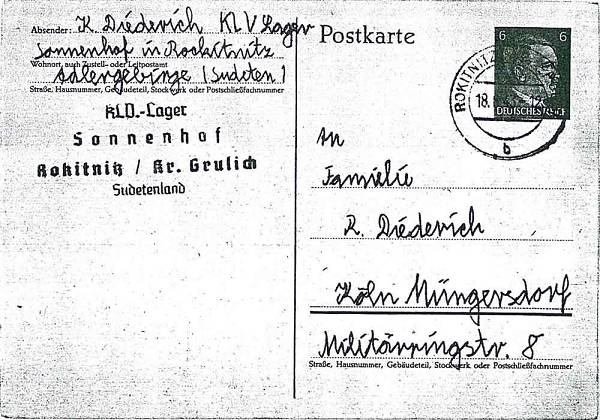 Absender: K Diederich KLV Lager
Sonnenhof in Rockitnitz
Wohnort, auch Zustell- oder Leitpostamt
Adlergebirge (Sudeten)
Straße, Hausnummer, Gebäudeteil, Stockwerk oder Postschließfachnummer
KLV.-Lager
Sonnenhof
Rokitnitz / Kr. Grulich
Sudetenland
Postkarte
6 6
DEUTSCHES REICH
ROKITNITZ
18.
b
An
Familie
R. Diederich
Köln Müngersdorf
Militärringstr. 8
Straße, Hausnummer, Gebäudeteil, Stockwerk oder Postschließfachnummer